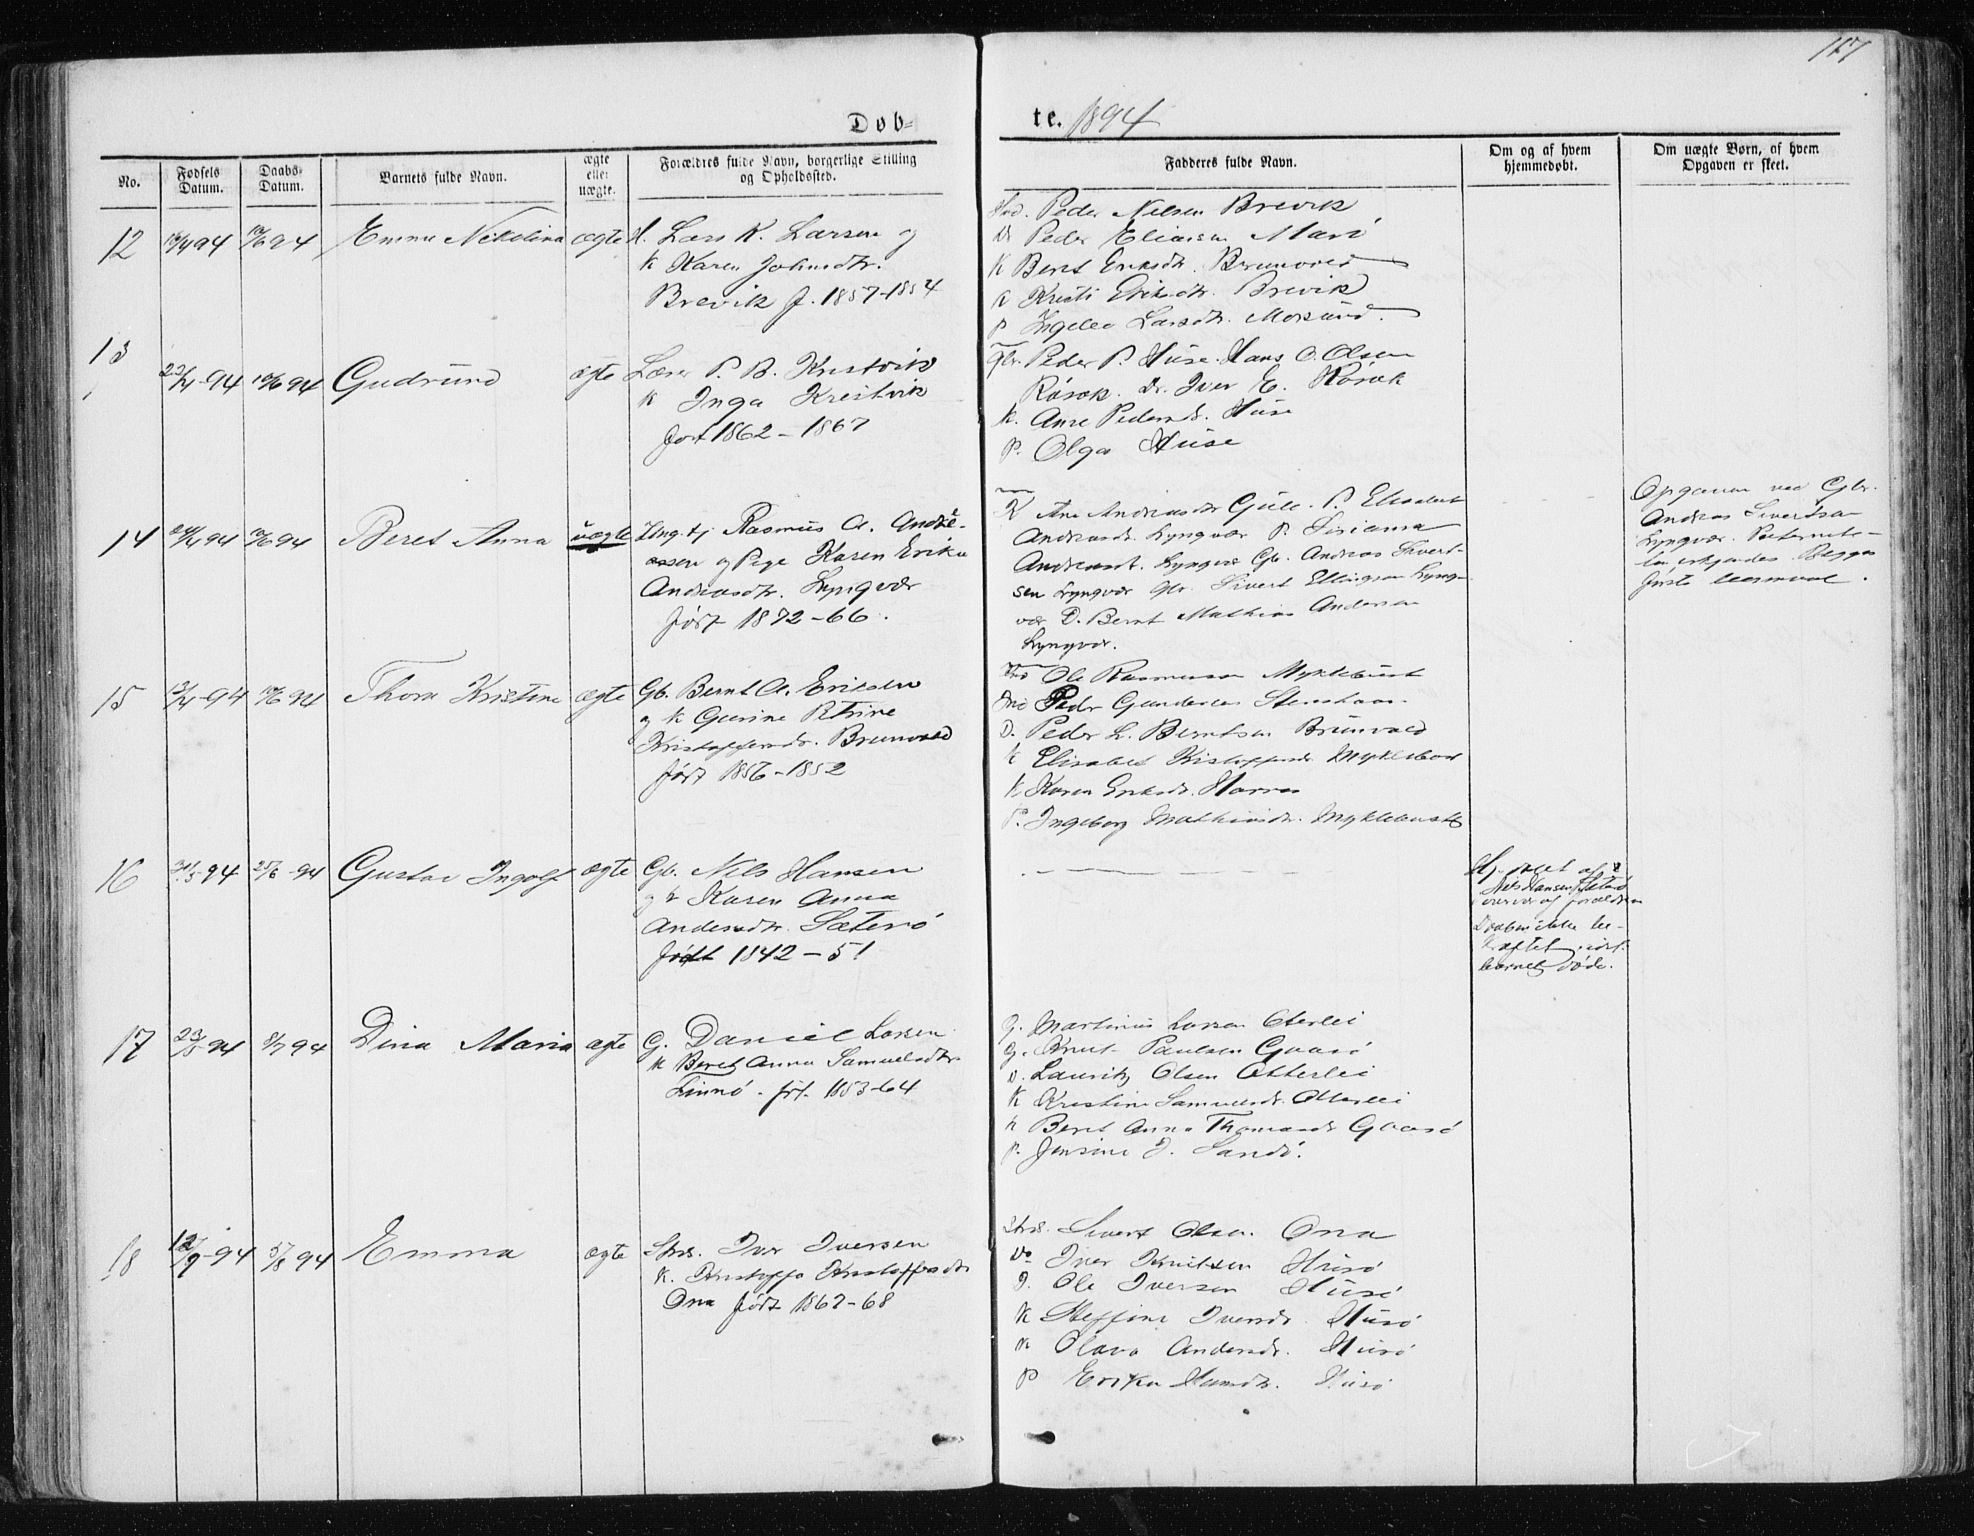 117
Døb-
te. 1894
No.
Fødsels Datum.
Daabs-Datum.
Barnets fulde Navn.
ægte eller uægte.
Forældres fulde Navn, borgerlige Stilling og Opholdssted.
Fadderes fulde Navn.
Om og af hvem hjemmedøbt.
Om uægte Børn, af hvem Opgaven er skeet.
12 94 94 Emma Nikolina ægte Lars K. Larsen og
K Karen Johnsdtr.
Brevik f. 1857-1854
Peder Nilsen Brevik
Peder Eliassen
K Beret Eriksdtr. Brunvold
K Kristi Eriksdtr. Brevik
P Larsdtr.
13 94 94 Gudrund ægte P. B. Kristvik
K Inga Kreistvik
født 1862-1867
Gbr. Peder P. Huse. Hans O. Olsen
Røsok. Dr. Iver E. Røsok
K. Ane Pedersd. Huse
P. Olga Huse
14 94 94 Beret Anna uægte Ung. Rasmus A. Andre-
assen og Pige Karen Erika
Andreasdtr. Lyngvær
født 1872-66.
K Ane Andreasdtr P. Elisabet
Andreasd. Lyngvær P.
Andreasd. Lyngvær Gb. Andreas Sivert-
sen Lyngvær Gbr. Sivert Ellingsen Lyng-
vær D. Bernt Mathias Andersen
Lyngvær.
Opgaven ved Gbr.
Andreas Sivertsen
Lyngvær.
Begges
første
15 94 94 Thora Kristine ægte Gb. Bernt A. Eriksen
og K Gurine Petrine
Kristoffersdr. Brunvold
født 1856-1852
Ole Rasmussen Myklebust
Peder Gundersen
D. Peder L. Berntsen Brunvold
K Elisabet
K Karen Eriksdr. Harnes
P. Ingeborg Mathiasdr. Myklebust
16 31/5 94 25/6 94 Gustav Ingolf ægte Gb. Nils Hansen
og K Karen Anna
Andersdtr. Sæterø
født 1842-51
Hj. døbt af
Nils Hansen
Daaben ikke be-
kræftet, idet
barnet døde.
17 23/5 94 8/7 94 Dina Maria ægte G. Daniel Larsen
K Beret Anna Samuelsdtr.
Finnø. fdt. 1853-64
G. Martinus Larsen Otterlei
G. Knut Paulsen Gaasø
D. Laurits Olsen Otterlei
K Kristine Samuelsdr. Otterlei
K Beret Anna Thomasdr Gaasø
P. Jensine J. Sandø.
18 94 5/8 94 Emma ægte Iver Iversen
K.
Ona født 1867-68
Sivert Olsen Ona
Iver Knutsen Husø
Ole Iversen Husø
K Steffine Iversdr. Husø
K Olava Andersdr. Husø
P Erika Hansdtr. Husø